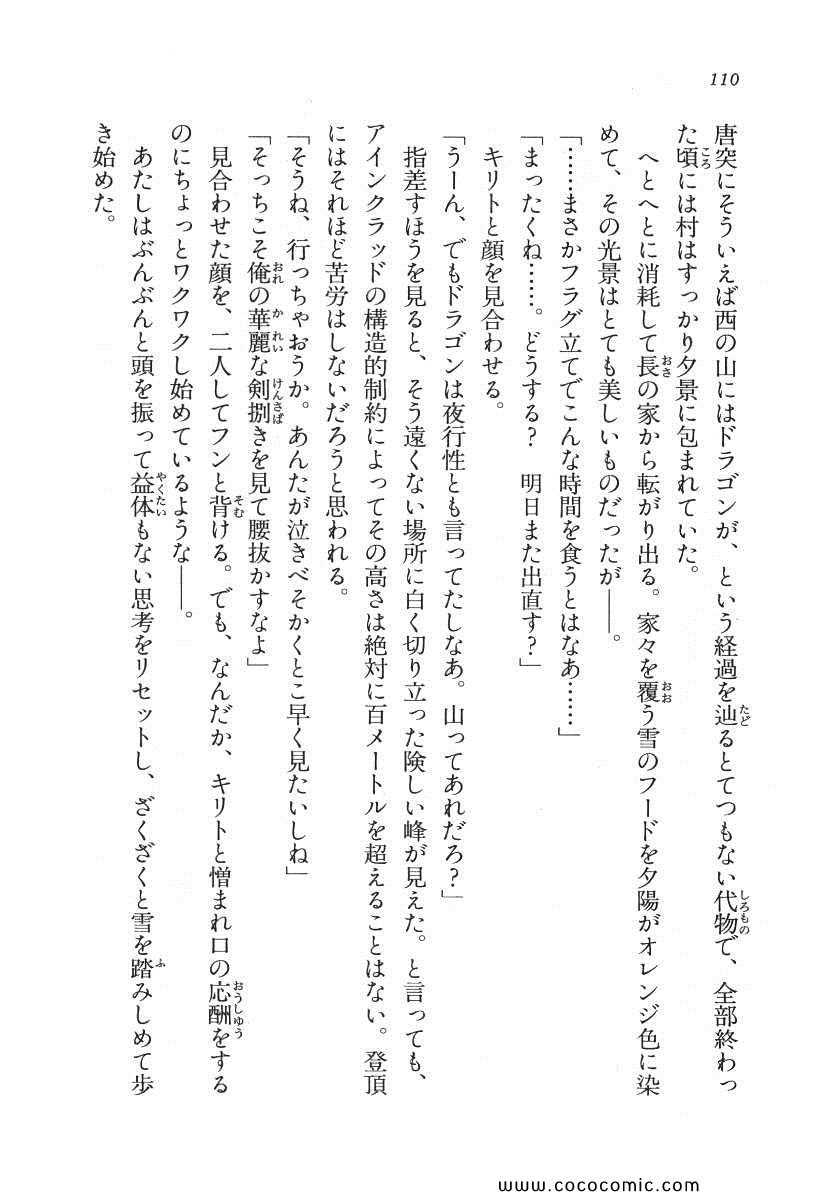 110
唐突にそういえば西の山にはドラゴンが、という経過を辿るとてつもない代物で、全部終わっ
た頃には村はすっかり夕景に包まれていた。
へとへとに消耗して長の家から転がり出る。家々を覆う雪のフードを夕陽がオレンジ色に染
めて、その光景はとても美しいものだったが――。
「……まさかフラグ立てでこんな時間を食うとはなあ……」
「まったくね……。どうする？　明日また出直す？」
キリトと顔を見合わせる。
「うーん、でもドラゴンは夜行性とも言ってたしなあ。山ってあれだろ？」
指差すほうを見ると、そう遠くない場所に白く切り立った険しい峰が見えた。と言っても、
アインクラッドの構造的制約によってその高さは絶対に百メートルを超えることはない。登頂
にはそれほど苦労はしないだろうと思われる。
「そうね、行っちゃおうか。あんたが泣きべそかくとこ早く見たいしね」
「そっちこそ俺の華麗な剣捌きを見て腰抜かすなよ」
見合わせた顔を、二人してフンと背ける。でも、なんだか、キリトと憎まれ口の応酬をする
のにちょっとワクワクし始めているような――。
あたしはぶんぶんと頭を振って益体もない思考をリセットし、ざくざくと雪を踏みしめて歩
き始めた。
www.cococomic.com